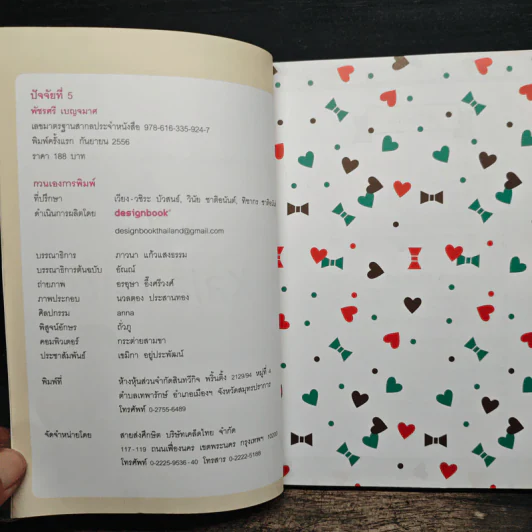 ปัจจัยที่ 5
พัชรศรี เบญจมาศ
เลขมาตรฐานสากลประจำหนังสือ 978-616-335-924-7
พิมพ์ครั้งแรก กันยายน 2556
ราคา 188 บาท
กวนเองการพิมพ์
ที่ปรึกษา เวียง-วชิระ บัวสนธ์, วินัย ชาติอนันต์, ทิชากร
ดำเนินการผลิตโดย designbook
designbookthailand@gmail.com
บรรณาธิการ ภาวนา แก้วแสงธรรม
บรรณาธิการต้นฉบับ ธัณณ์
ถ่ายภาพ อรอุษา อึ๊งศรีวงศ์
ภาพประกอบ นวลตอง ประสานทอง
ศิลปกรรม anna
พิสูจน์อักษร ถั่วภู
คอมพิวเตอร์ กระต่ายสามขา
ประชาสัมพันธ์ เขมิกา อยู่ประพัฒน์
พิมพ์ที่ ห้างหุ้นส่วนจำกัดสินทวีกิจ พริ้นติ้ง 2129/94 หมู่ที่ 4
ตำบลเทพารักษ์ อำเภอเมืองฯ จังหวัดสมุทรปราการ
โทรศัพท์ 0-2755-6489
จัดจำหน่ายโดย สายส่งศึกษิต บริษัทเคล็ดไทย จำกัด
117-119 ถนนเฟื่องนคร เขตพระนคร กรุงเทพฯ 10200
โทรศัพท์ 0-2225-9536-40 โทรสาร 0-2222-5188